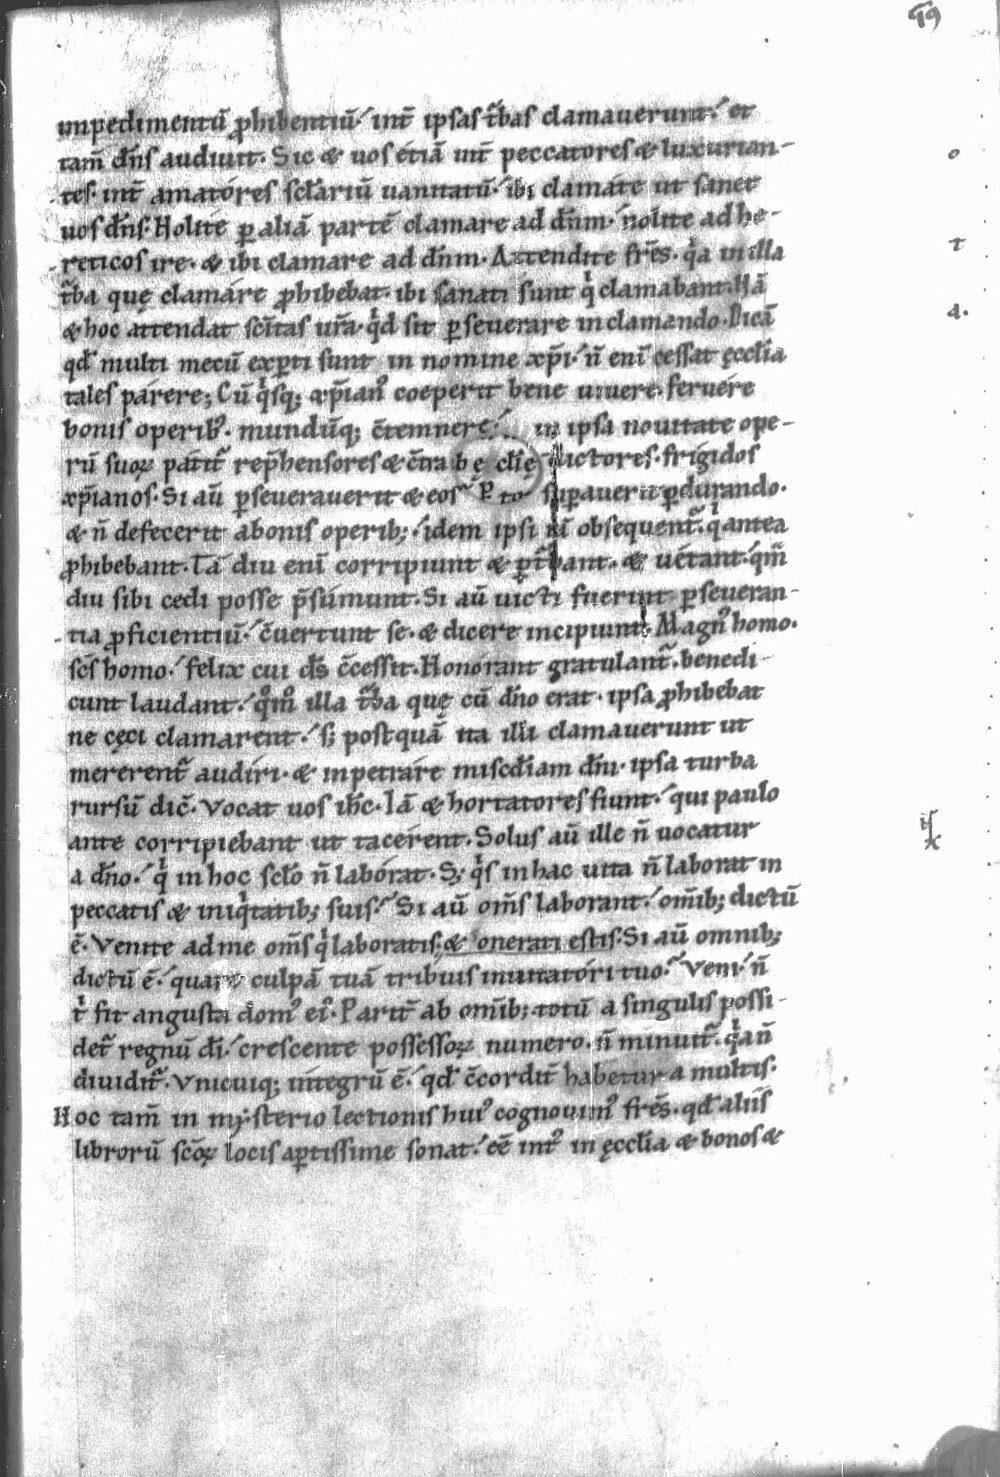 99
impedimentū ꝓhibentiū / int̄ ipsas t̄bas clamauerunt / et
tam̄ dn̄s audiuit. Sic & uos etiā int̄ peccatores & luxurian-
tes. int̄ amatores sclariū uanitatū / ibi clamate ut sanet
uos dn̄s. Nolite ꝑ aliā partē clamare ad dn̄m. nolite ad he-
reticos ire. & ibi clamare ad dn̄m. Attendite frēs. qͥa in illa
t̄ba quę clamare ꝓhibebat. ibi sanati sunt qͥ clamabant. Nā
& hoc attendat sc̄itas ur̄a. qͥd sit ꝑseuerare in clamando. Dicā
qd̄ multi mecū exꝑti sunt in nomine xp̄i. n̄ eni cessat ęccl̄ia
tales parere; Cū qͥsq; xp̄ianꝰ coeperit bene uiuere. feruere
bonis operibꝰ. mundūq; c̄temnere / in ipsa nouitate ope-
rū suoꝝ patit᷑ rep̄hensores & c̄tradictores. frigidos
xp̄ianos. Si aū ꝑseuerauerit & eos suꝑauerit ꝑdurando.
& n̄ defecerit a bonis operib; / idem ipsi ei obsequent᷑. qͥ antea
ꝓhibebant. Tā diu eni corripiunt & ꝑt̄bant. & uetant / qm̄
diu sibi cedi posse p̄sumunt. Si aū uicti fuerint ꝑseueran-
tia ꝓficientiū / c̄uertunt se. & dicere incipiunt. Magnꝰ homo.
sc̄s homo / felix cui d̄s c̄cessit. Honorant gratulant᷑. benedi-
cunt laudant / qͦmͦ illa t̄ba quę cū dn̄o erat. ipsa ꝓhibebat
ne cęci clamarent / s; postquā ita illi clamauerunt ut
mererent᷑ audiri. & inpetrare misc̄diam dn̄i. ipsa turba
rursū dic̄. Vocat uos ih̄c. Iā & hortatores fiunt / qui paulo
ante corripiebant ut tacerent. Solus aū ille n̄ uocatur
a dn̄o / qͥ in hoc scl̄o n̄ laborat. S; qͥs in hac uita n̄ laborat in
peccatis & iniqͥtatib; suis / Si aū om̄s laborant / om̄ib; dictū
ē. Venite ad me om̄s qͥ laboratis; & onerati estis. Si aū omnib;
dictū ē / quare culpā tuā tribuis inuitatori tuo / Veni / n̄
t̄ sit angusta domꝰ eiꝰ. Parit̄ ab om̄ib; totū a singulis possi-
det᷑ regnū dī / crescente possessoꝝ numero. n̄ minuit᷑. qͥa n̄
diuidit᷑. Vnicuiq; integrū ē / qd̄ c̄cordit̄ habetur a multis.
Hoc tam̄ in mẏsterio lectionis huiꝰ cognouimꝰ frēs. qd̄ aliis
librorū sc̄oꝝ locis aꝑtissime sonat / eē intꝰ in ęccl̄ia & bonos &